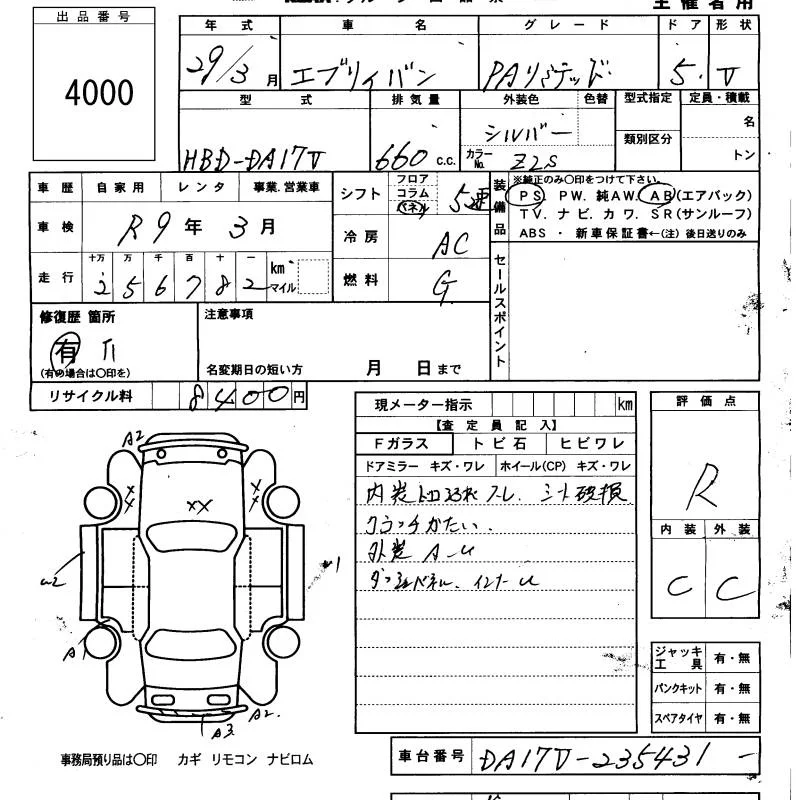 主催者用
出品番号
4000
年式 車名 グレード ドア 形状
29/3月 エブリイバン PAリミテッド 5 V
型式 排気量 外装色 色替 型式指定 定員・積載
HBD-DA17V 660 c.c. シルバー 類別区分 名
カラーNo. Z2S トン
車歴 自家用 レンタ 事業.営業車
シフト フロア コラム 5速
装備品 ※純正のみ〇印をつけて下さい。
PS. PW. 純AW. AB(エアバック)
TV. ナビ. カワ. SR(サンルーフ)
ABS ・ 新車保証書←(注) 後日送りのみ
車検 R9年3月
冷房 AC
走行 十万 万 千 百 十 一
2 5 6 7 8 2 km マイル
燃料 G
セールスポイント
修復歴 箇所
有
(有の場合は〇印を)
注意事項
名変期日の短い方 月 日まで
リサイクル料 8400円
現メーター指示 km
【査定員記入】
Fガラス トビ石 ヒビワレ
ドアミラー キズ・ワレ ホイール(CP) キズ・ワレ
内装 シート破損
クラッチかたい.
外装 A-U
ダッシュパネル. インナーU
評価点
R
内装 外装
C C
ジャッキ工具 有・無
パンクキット 有・無
スペアタイヤ 有・無
A2
XX
XX
XX
A1
A2
A3
事務局預り品は〇印 カギ リモコン ナビロム
車台番号 DA17V-235431